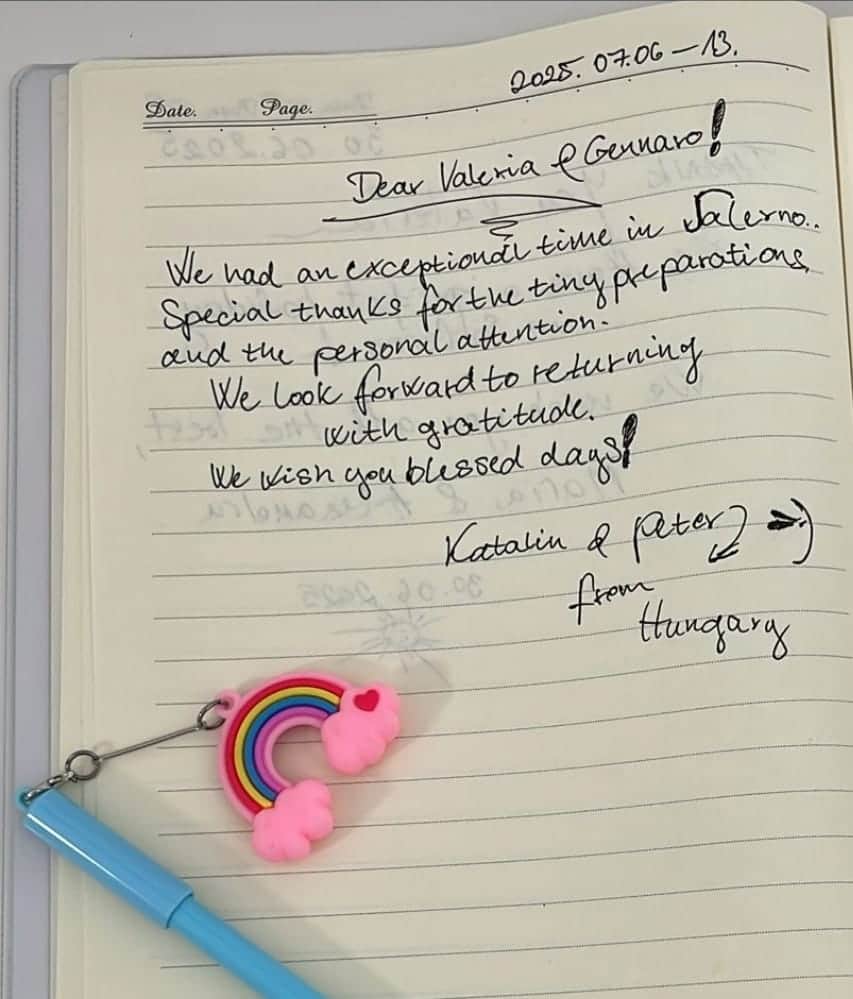 2025. 07.06 – 13.
Date. Page.
Dear Valeria & Gennaro!
We had an exceptional time in Salerno..
Special thanks for the tiny preparations
and the personal attention.
We look forward to returning
with gratitude.
We wish you blessed days!
Katalin & Peter :)
from
Hungary